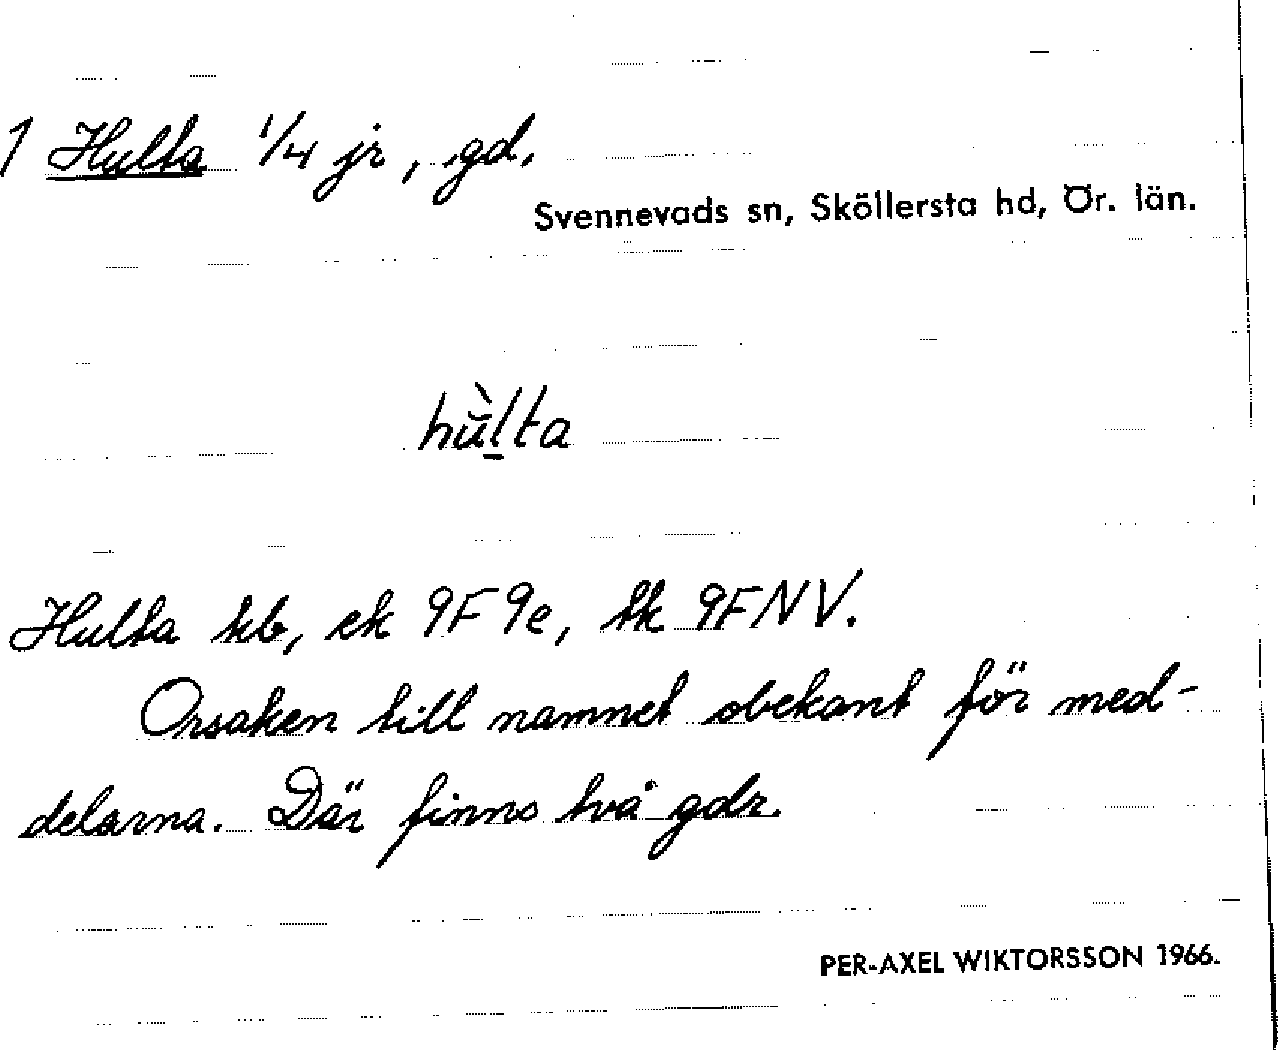 1 Hulta 1/4 jr, gd.
Svennevads sn, Sköllersta hd, Ör. län.
hù̆lta
Hulta kb, ek 9F9e, tk 9FNV.
Orsaken till namnet obekant för med-
delarna. Där finns två gdr.
PER-AXEL WIKTORSSON 1966.